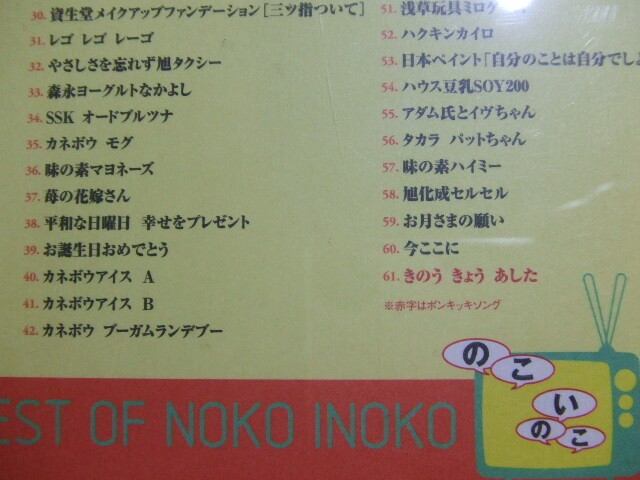 30. 資生堂メイクアップファンデーション[三ツ指ついて]
31. レゴ レゴ レーゴ
32. やさしさを忘れず旭タクシー
33. 森永ヨーグルトなかよし
34. SSK オードブルツナ
35. カネボウ モグ
36. 味の素マヨネーズ
37. 苺の花嫁さん
38. 平和な日曜日 幸せをプレゼント
39. お誕生日おめでとう
40. カネボウアイス A
41. カネボウアイス B
42. カネボウ ブーガムランデブー
51. 浅草玩具ミロ
52. ハクキンカイロ
53. 日本ペイント「自分のことは自分でし
54. ハウス豆乳SOY200
55. アダム氏とイヴちゃん
56. タカラ パットちゃん
57. 味の素ハイミー
58. 旭化成セルセル
59. お月さまの願い
60. 今ここに
61. きのう きょう あした
※赤字はポンキッキソング
EST OF NOKO INOKO
のこ
い
のこ